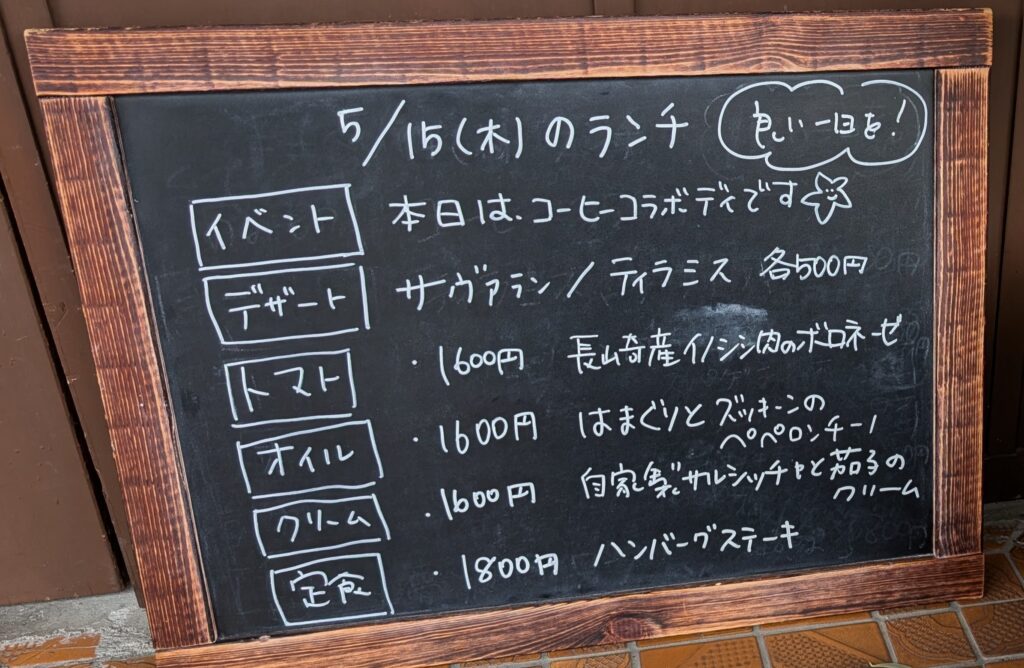 5/15(木)のランチ 良い一日を!
イベント 本日は、コーヒーコラボデイです
デザート サヴァラン / ティラミス 各500円
トマト ・1600円 長崎産イノシシ肉のボロネーゼ
オイル ・1600円 はまぐりとズッキーンの
ペペロンチーノ
クリーム ・1600円 自家製サルシッチャと茄子の
クリーム
定食 ・1800円 ハンバーグステーキ